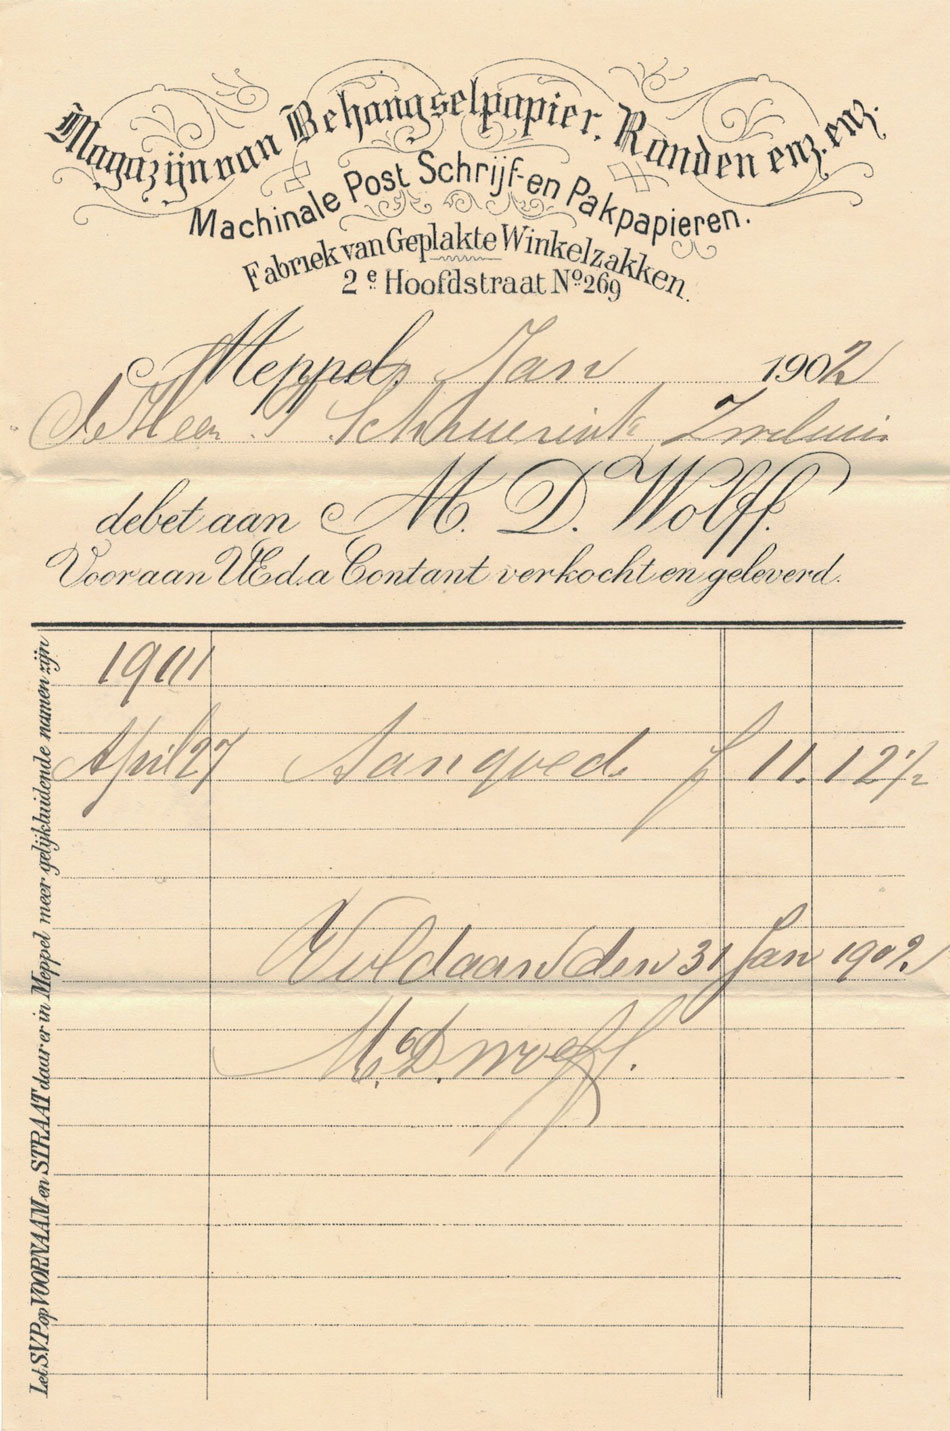 Magazijn van Behangselpapier. Randen enz. enz.
Machinale Post Schrijf- en Pakpapieren.
Fabriek van Geplakte Winkelzakken.
2e Hoofdstraat No 269
Meppel, Jan 1902
de Heer
debet aan M. D. Wolff.
Voor aan UEd. a Contant verkocht en geleverd.
1901
April 27 Aangoed. f 11.12½
Voldaan den 31 Jan 1902
M. D. Wolff.
Let S.V.P. op VOORNAAM en STRAAT daar er in Meppel meer gelijkluidende namen zijn